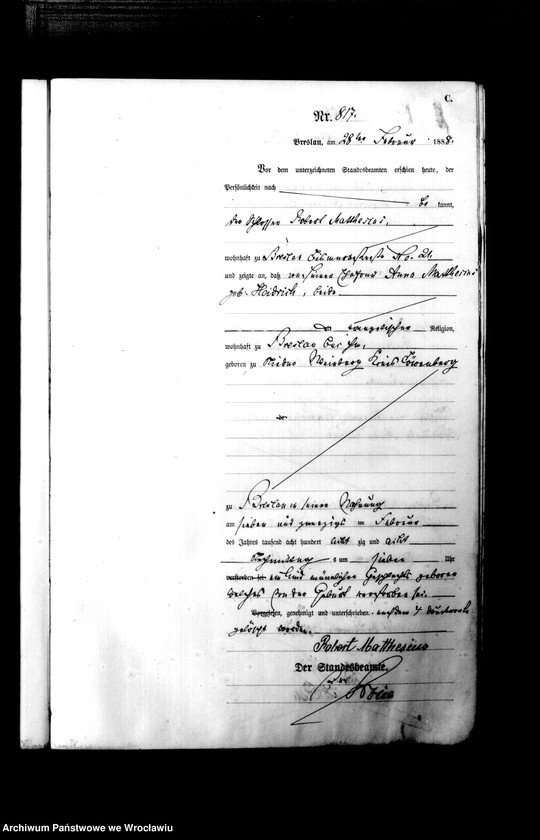 C.
Nr. 817.
Breslau, am 28ten Februar 1888.
Vor dem unterzeichneten Standesbeamten erschien heute, der
Persönlichkeit nach
be kannt,
der Schlosser Robert Matthesius,
wohnhaft zu Breslau No. 21.
und zeigte an, daß von seiner Ehefrau Anna Matthesius
geb. Heidrich, beide
evangelischer Religion,
wohnhaft zu Breslau bei ihm,
geboren zu Weinberg Kreis Löwenberg
zu Breslau in seiner Wohnung
am sieben und zwanzigsten Februar
des Jahres tausend acht hundert acht zig und acht
Nachmittag s um sieben Uhr
verstorben sei ein Kind männlichen Geschlechts geboren
welches in der Geburt verstorben sei.
Vorgelesen, genehmigt und unterschrieben nachdem 7 Druckworte
gelöscht worden.
Robert Matthesius
Der Standesbeamte.
Archiwum Państwowe we Wrocławiu